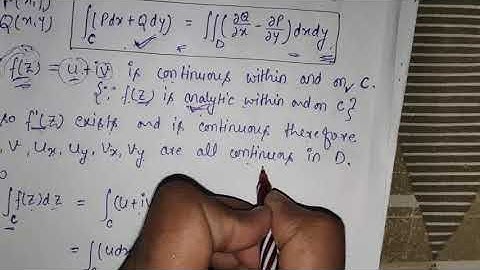 P(x,y)
Q(x,y)
∬_C (Pdx+Qdy) = ∭_D (∂Q/∂x - ∂P/∂y) dxdy
f(z) = u+iv is continuous within and on C.
{∵ f(z) is analytic within and on C}
so f'(z) exists and is continuous therefore
u, v, ux, uy, vx, vy are all continuous in D.
∫_C f(z)dz = ∫(u+iv
= ∬_C (udx